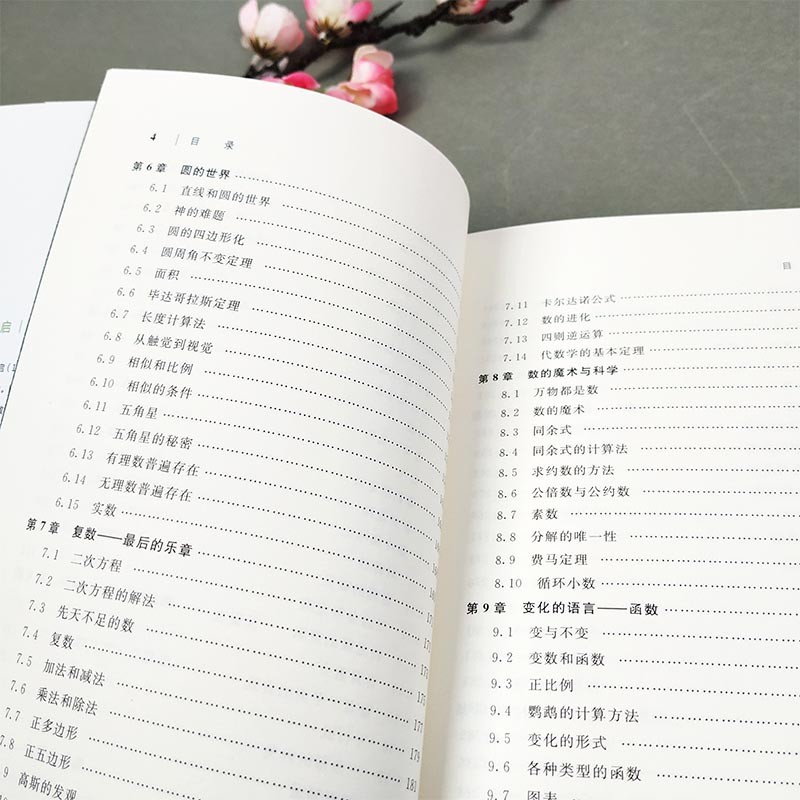 4 | 目 录
第6章 圆的世界
6.1 直线和圆的世界
6.2 神的难题
6.3 圆的四边形化
6.4 圆周角不变定理
6.5 面积
6.6 毕达哥拉斯定理
6.7 长度计算法
6.8 从触觉到视觉
6.9 相似和比例
6.10 相似的条件
6.11 五角星
6.12 五角星的秘密
6.13 有理数普遍存在
6.14 无理数普遍存在
6.15 实数
第7章 复数——最后的乐章
7.1 二次方程
7.2 二次方程的解法
7.3 先天不足的数
7.4 复数
7.5 加法和减法 175
7.6 乘法和除法 177
7.7 正多边形 179
7.8 正五边形 181
9 高斯的发现
目
7.11 卡尔达诺公式
7.12 数的进化
7.13 四则逆运算
7.14 代数学的基本定理
第8章 数的魔术与科学
8.1 万物都是数
8.2 数的魔术
8.3 同余式
8.4 同余式的计算法
8.5 求约数的方法
8.6 公倍数与公约数
8.7 素数
8.8 分解的唯一性
8.9 费马定理
8.10 循环小数
第9章 变化的语言——函数
9.1 变与不变
9.2 变数和函数
9.3 正比例
9.4 鹦鹉的计算方法
9.5 变化的形式
9.6 各种类型的函数
9.7 图表
启